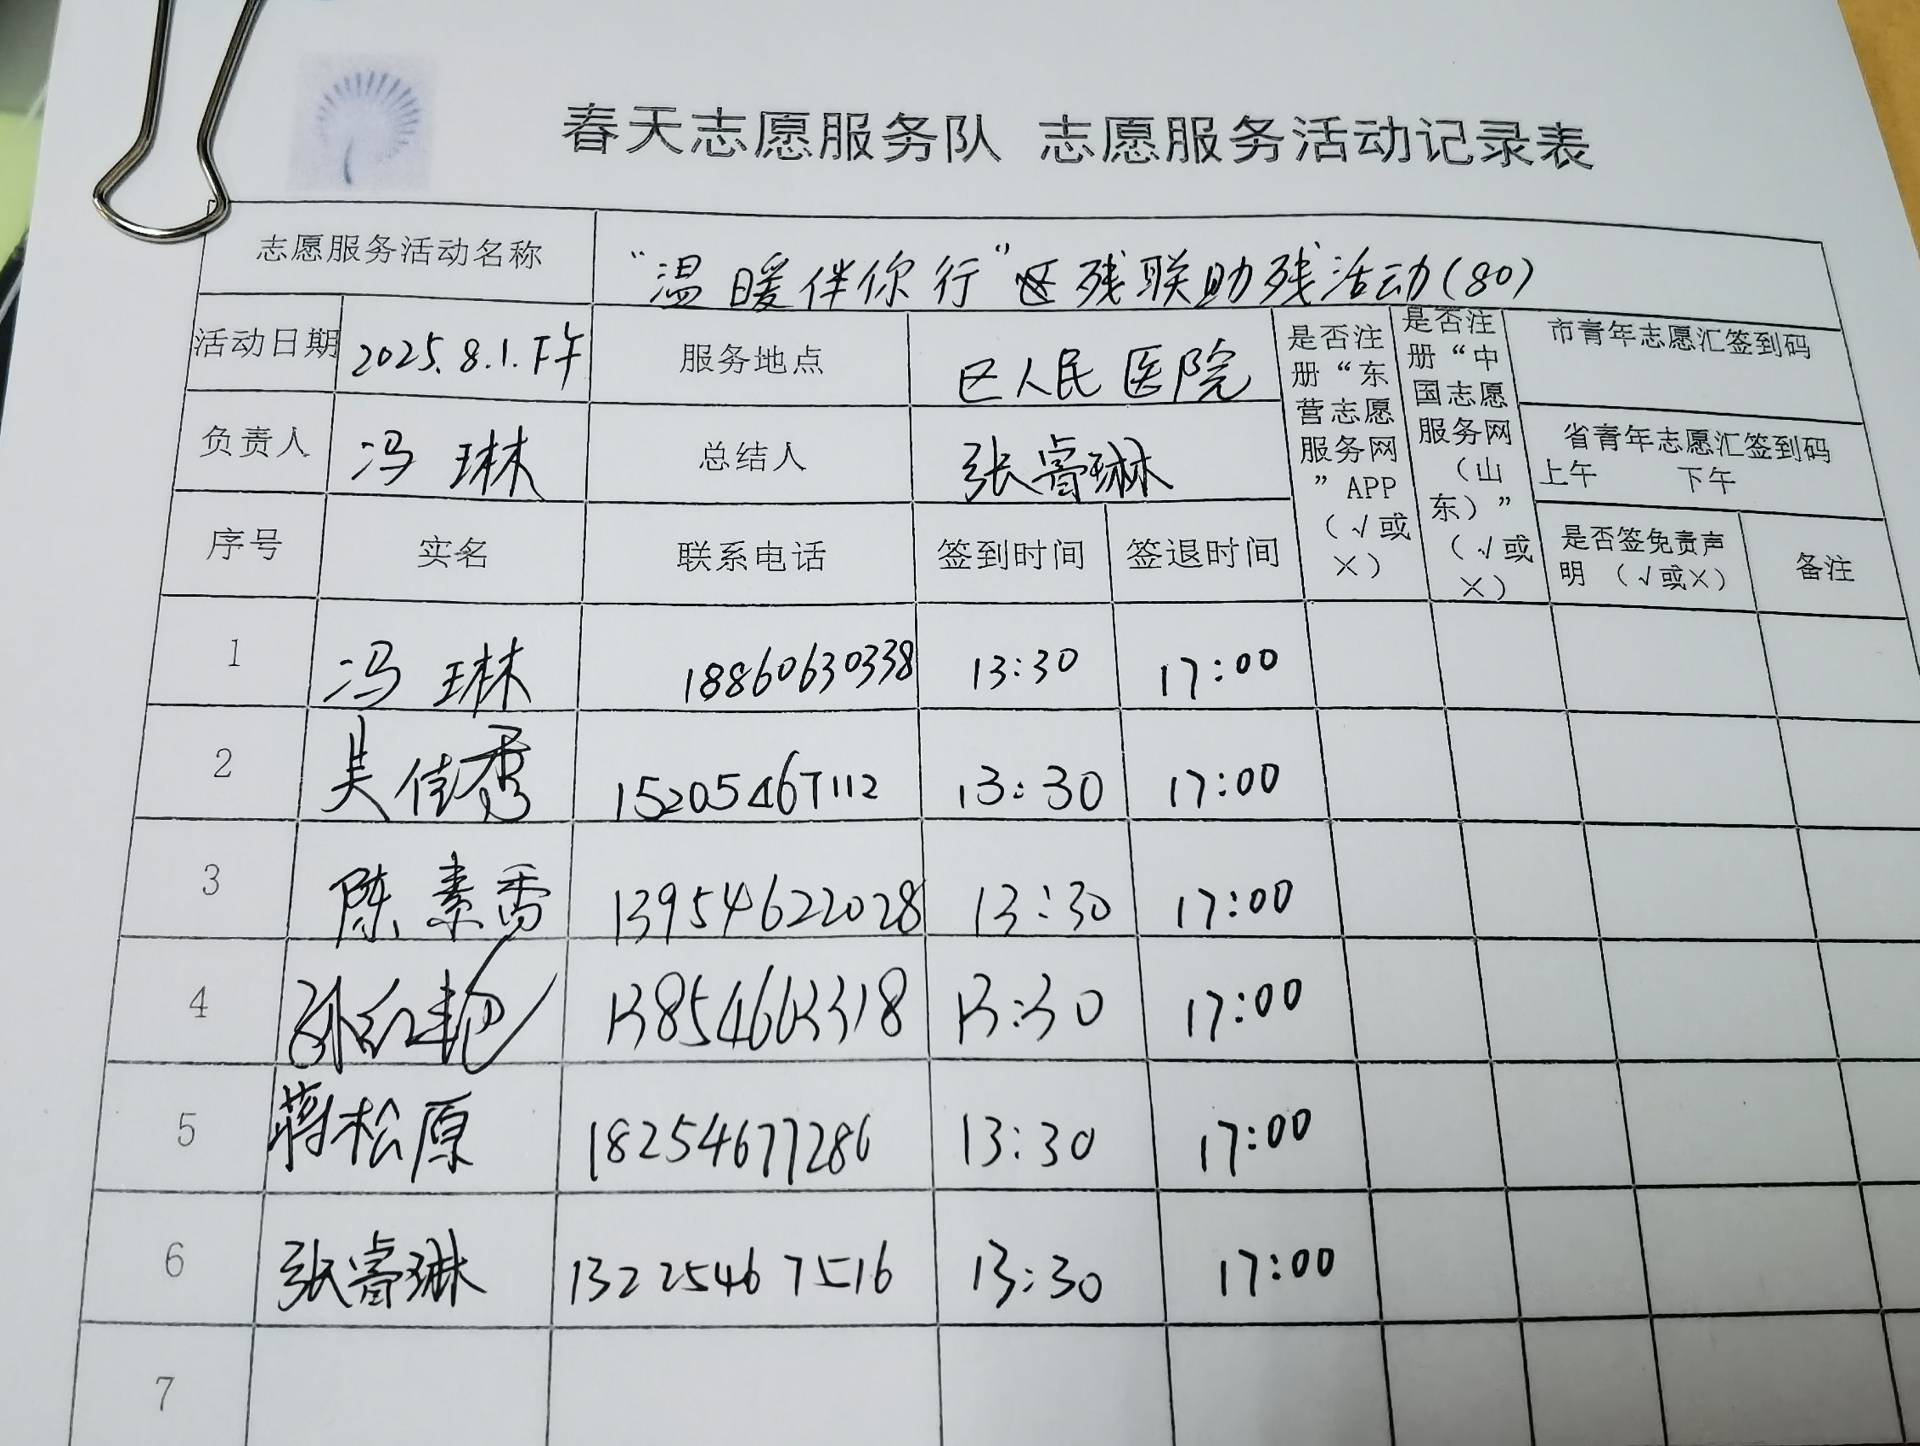 春天志愿服务队 志愿服务活动记录表
志愿服务活动名称 “温暖伴你行”区残联助残活动(80)
活动日期 2025.8.1.下午 服务地点 区人民医院 是否注册“东营志愿服务网”APP（√或×） 是否注册“中国志愿服务网（山东）”（√或×） 市青年志愿汇签到码
负责人 冯琳 总结人 张睿琳 省青年志愿汇签到码
上午 下午
序号 实名 联系电话 签到时间 签退时间 是否签免责声明 （√或×） 备注
1 冯琳 18860630338 13:30 17:00
2 吴佳秀 15205467112 13:30 17:00
3 陈素雷 13954622028 13:30 17:00
4 孙红艳 13854663318 13:30 17:00
5 蒋松原 18254677286 13:30 17:00
6 张睿琳 13225467516 13:30 17:00
7